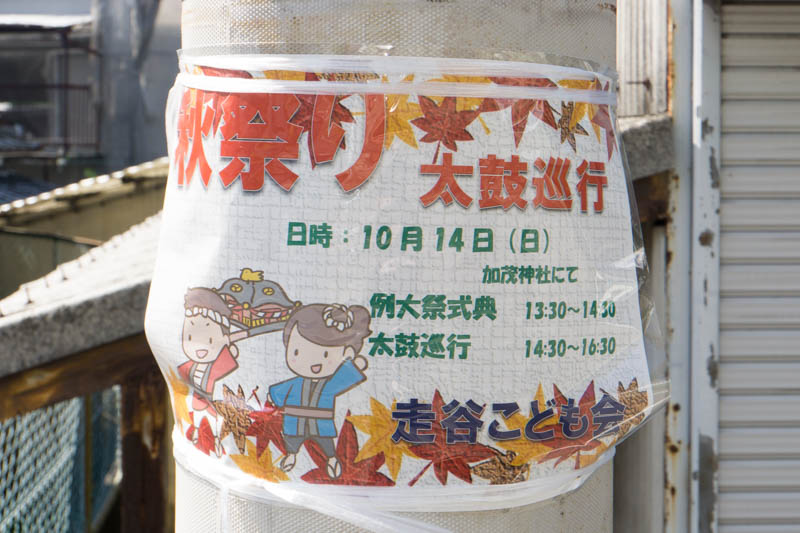 秋祭り
太鼓巡行
日時：10月14日（日）
加茂神社にて
例大祭式典 13:30～14:30
太鼓巡行 14:30～16:30
走谷こども会